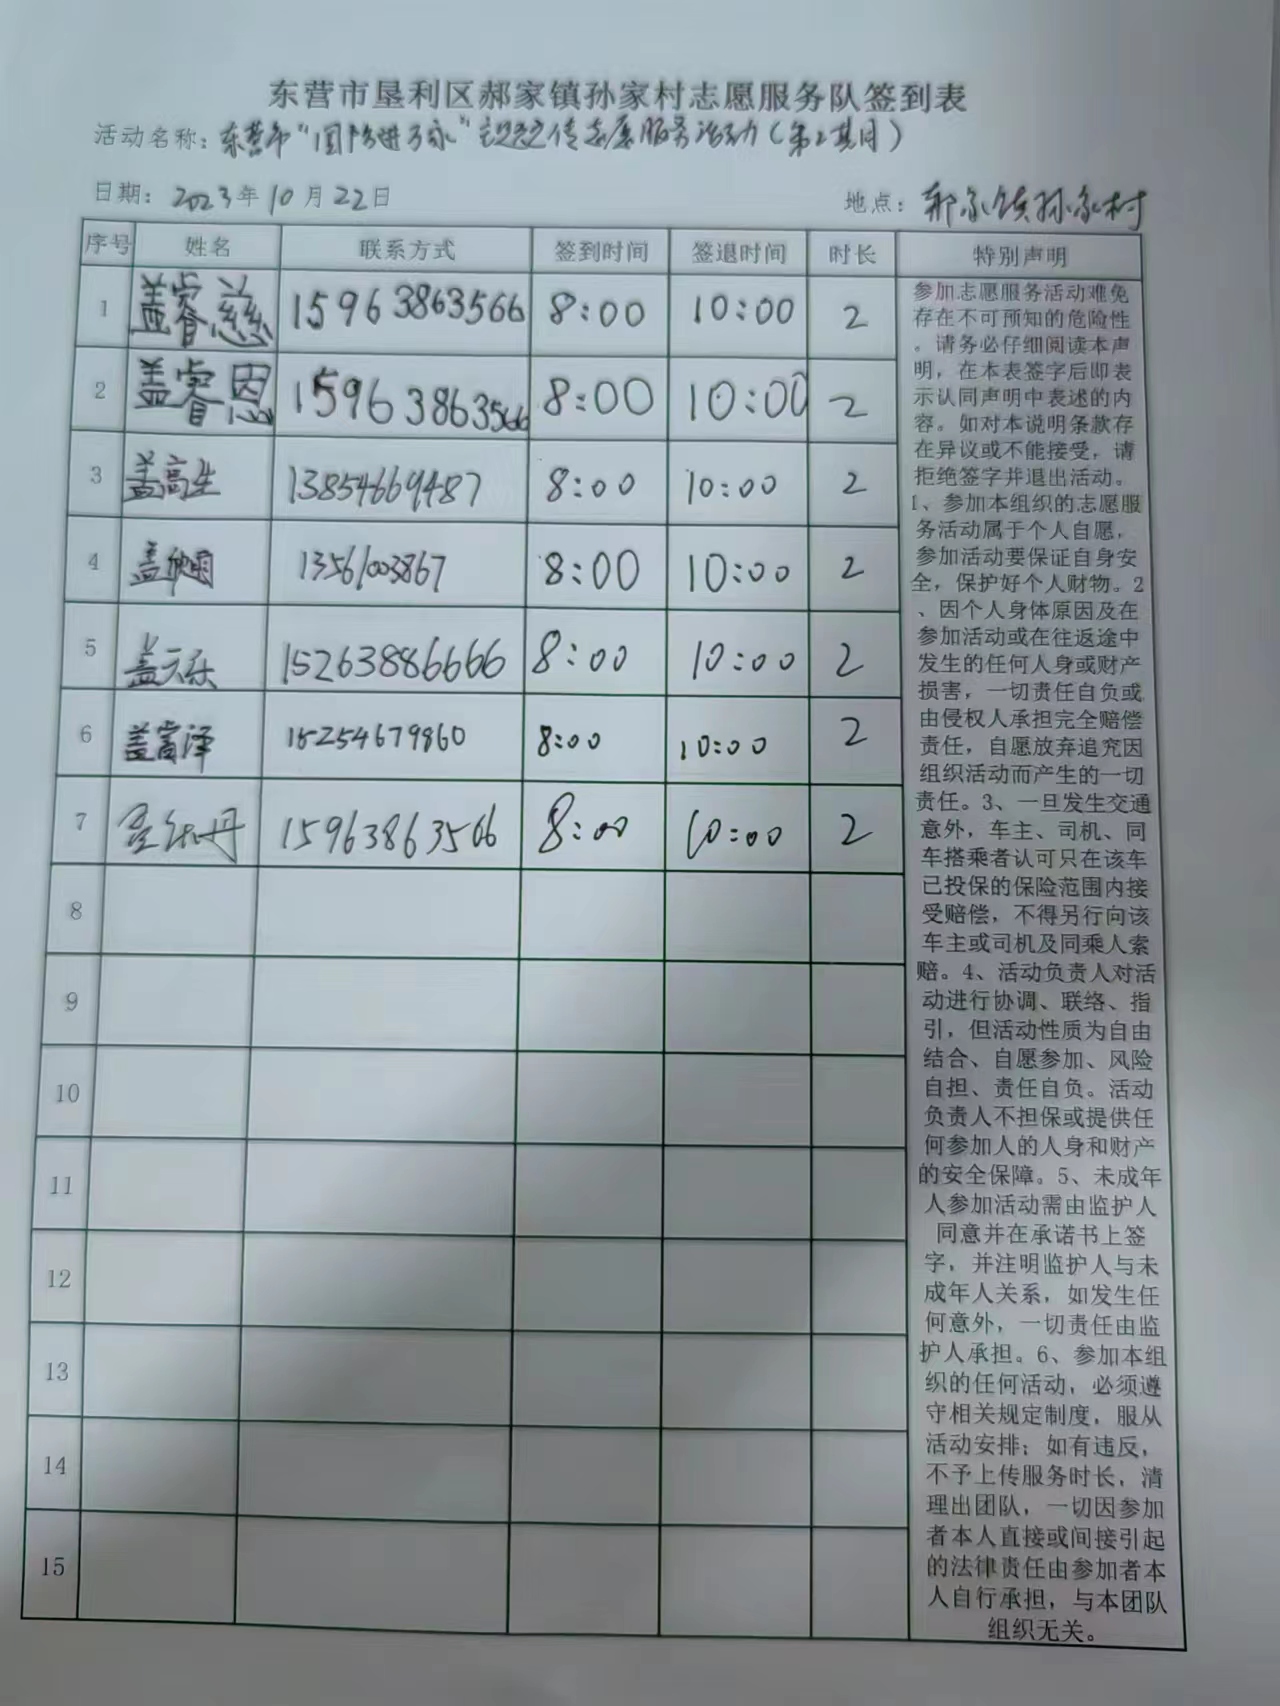 东营市垦利区郝家镇孙家村志愿服务队签到表
活动名称：东营市“国防进万家”主题宣传志愿服务活动（第2期）
日期：2023年10月22日 地点：郝家镇孙家村
序号 姓名 联系方式 签到时间 签退时间 时长 特别声明
1 盖睿慈 15963863566 8:00 10:00 2
2 盖睿恩 15963863566 8:00 10:00 2
3 盖高生 13854669487 8:00 10:00 2
4 盖 13561003867 8:00 10:00 2
5 盖 15263886666 8:00 10:00 2
6 盖富泽 15254679860 8:00 10:00 2
7 牡丹 15963863566 8:00 10:00 2
8
9
10
11
12
13
14
15
参加志愿服务活动难免
存在不可预知的危险性
。请务必仔细阅读本声
明，在本表签字后即表
示认同声明中表述的内
容。如对本说明条款存
在异议或不能接受，请
拒绝签字并退出活动。
1、参加本组织的志愿服
务活动属于个人自愿，
参加活动要保证自身安
全，保护好个人财物。2
、因个人身体原因及在
参加活动或在往返途中
发生的任何人身或财产
损害，一切责任自负或
由侵权人承担完全赔偿
责任，自愿放弃追究因
组织活动而产生的一切
责任。3、一旦发生交通
意外，车主、司机、同
车搭乘者认可只在该车
已投保的保险范围内接
受赔偿，不得另行向该
车主或司机及同乘人索
赔。4、活动负责人对活
动进行协调、联络、指
引，但活动性质为自由
结合、自愿参加、风险
自担、责任自负。活动
负责人不担保或提供任
何参加人的人身和财产
的安全保障。5、未成年
人参加活动需由监护人
同意并在承诺书上签
字，并注明监护人与未
成年人关系，如发生任
何意外，一切责任由监
护人承担。6、参加本组
织的任何活动，必须遵
守相关规定制度，服从
活动安排；如有违反，
不予上传服务时长，清
理出团队，一切因参加
者本人直接或间接引起
的法律责任由参加者本
人自行承担，与本团队
组织无关。